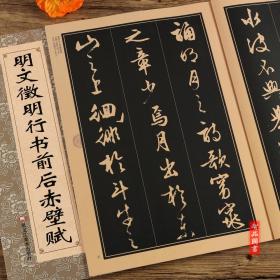 明·文徵明行书前后赤壁赋
水波不興舉
誦明月之詩歌窈窕
之章少焉月出於東
山之上徘徊於斗牛之